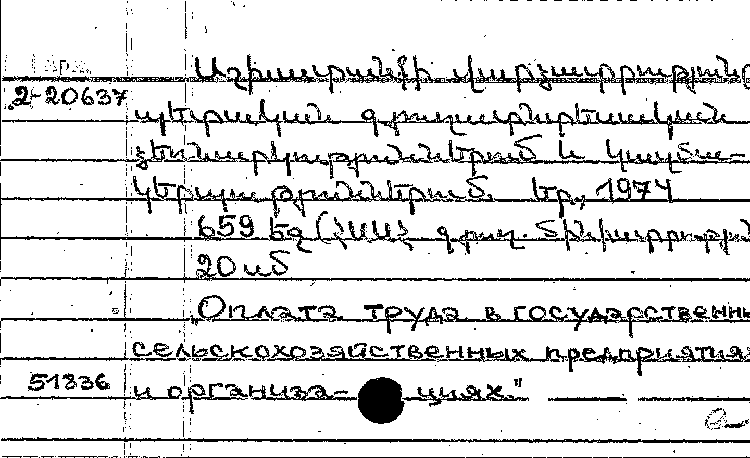 Աշխատանքի վարձատրություն
2-20637 պետական գյուղատնտեսական
ձեռնարկություններում և կազմա-
կերպություններում. Եր., 1974
659 եզ (ՀՍՍՀ գյուղ. մինիստրությ
20 սմ
„Оплата труда в государственны
сельскохозяйственных предприятия
51336 и организа- циях."